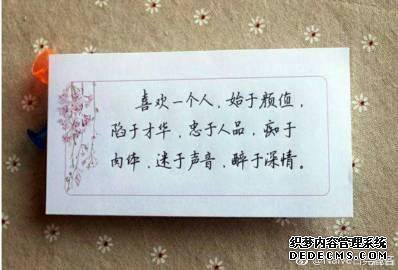 喜欢一个人，始于颜值，
陷于才华，忠于人品，痴于
肉体，迷于声音，醉于深情。
织梦内容管理系统
DEDECMS.COM